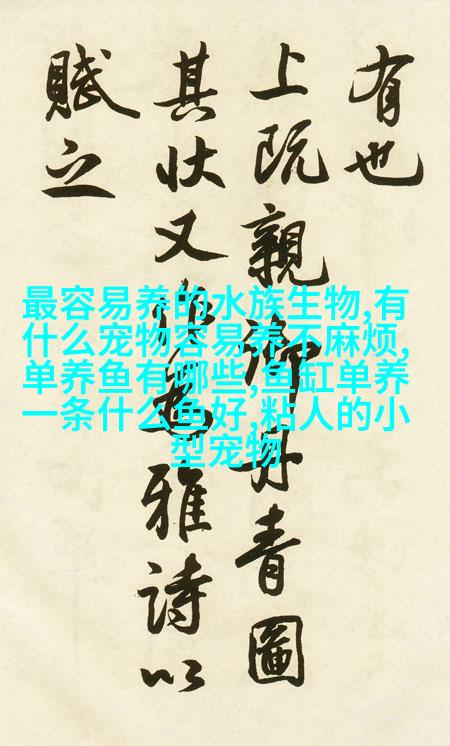 有也
上既親御丹青圖
其状又作為雅詩以
賦之
最容易养的水族生物,有
什么宠物容易养不麻烦,
单养鱼有哪些,鱼缸单养
一条什么鱼好,粘人的小
型宠物